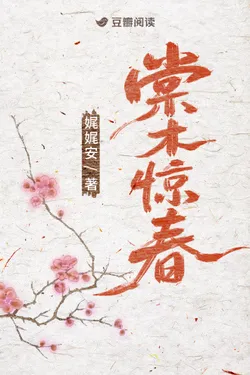 豆瓣阅读
棠木惊春
娓娓安/著